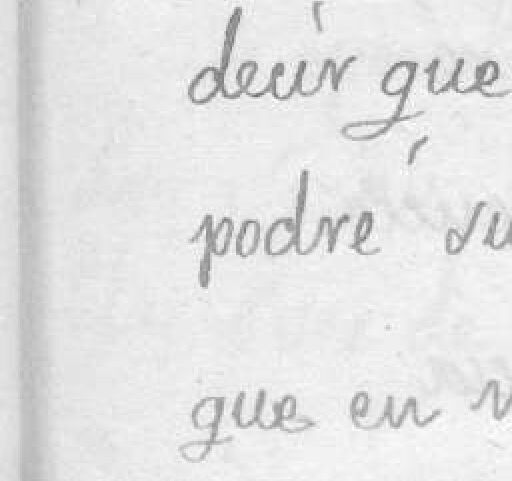 decir que
podré su
que en